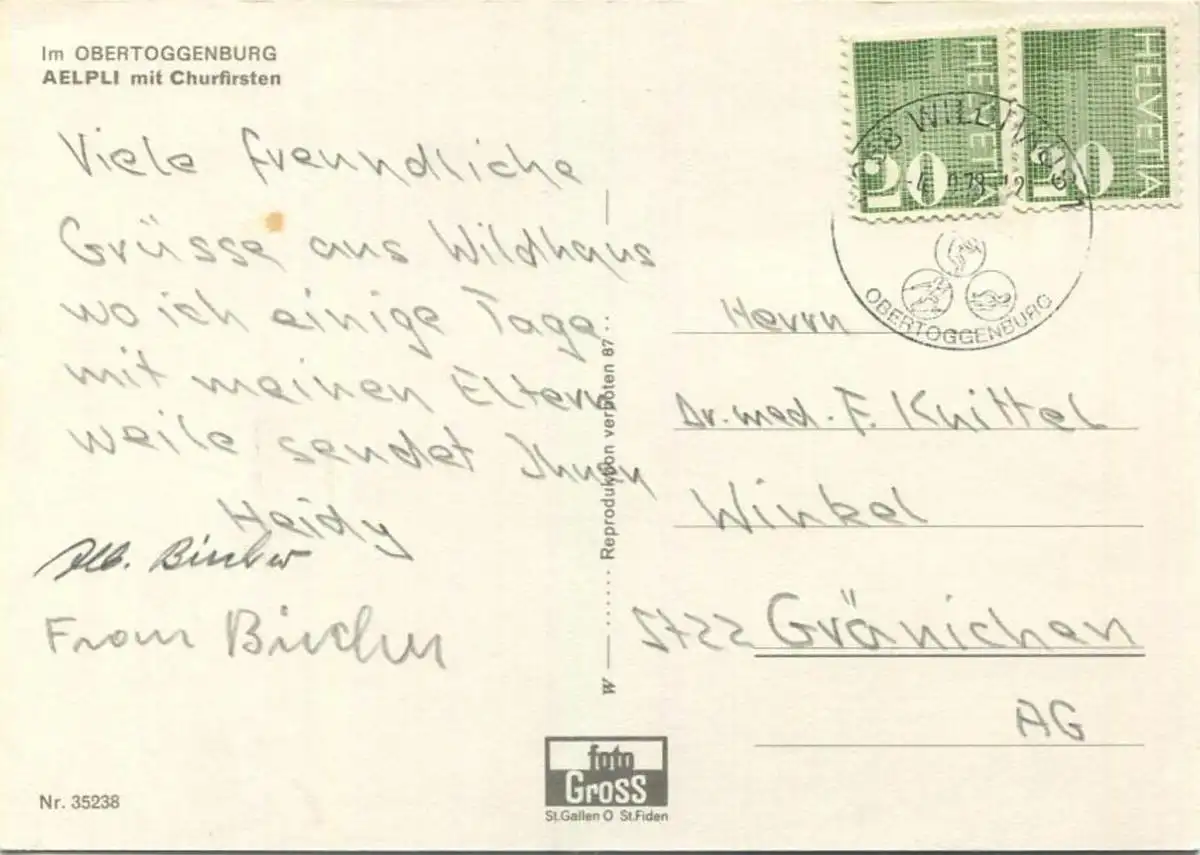 Im OBERTOGGENBURG
AELPLI mit Churfirsten
Viele freundliche
Grüsse aus Wildhaus
wo ich einige Tage
mit meinen Eltern
weile sendet Ihnen
Heidy
Alb. Bircher
Frau Bircher
Nr. 35238
W
Reproduktion verboten 87
foto
Gross
St.Gallen O St.Fiden
HELVETIA
50
HELVETIA
50
WILDHAUS
OBERTOGGENBURG
Herrn
Dr. med. F. Knittel
Winkel
5722 Gränichen
AG